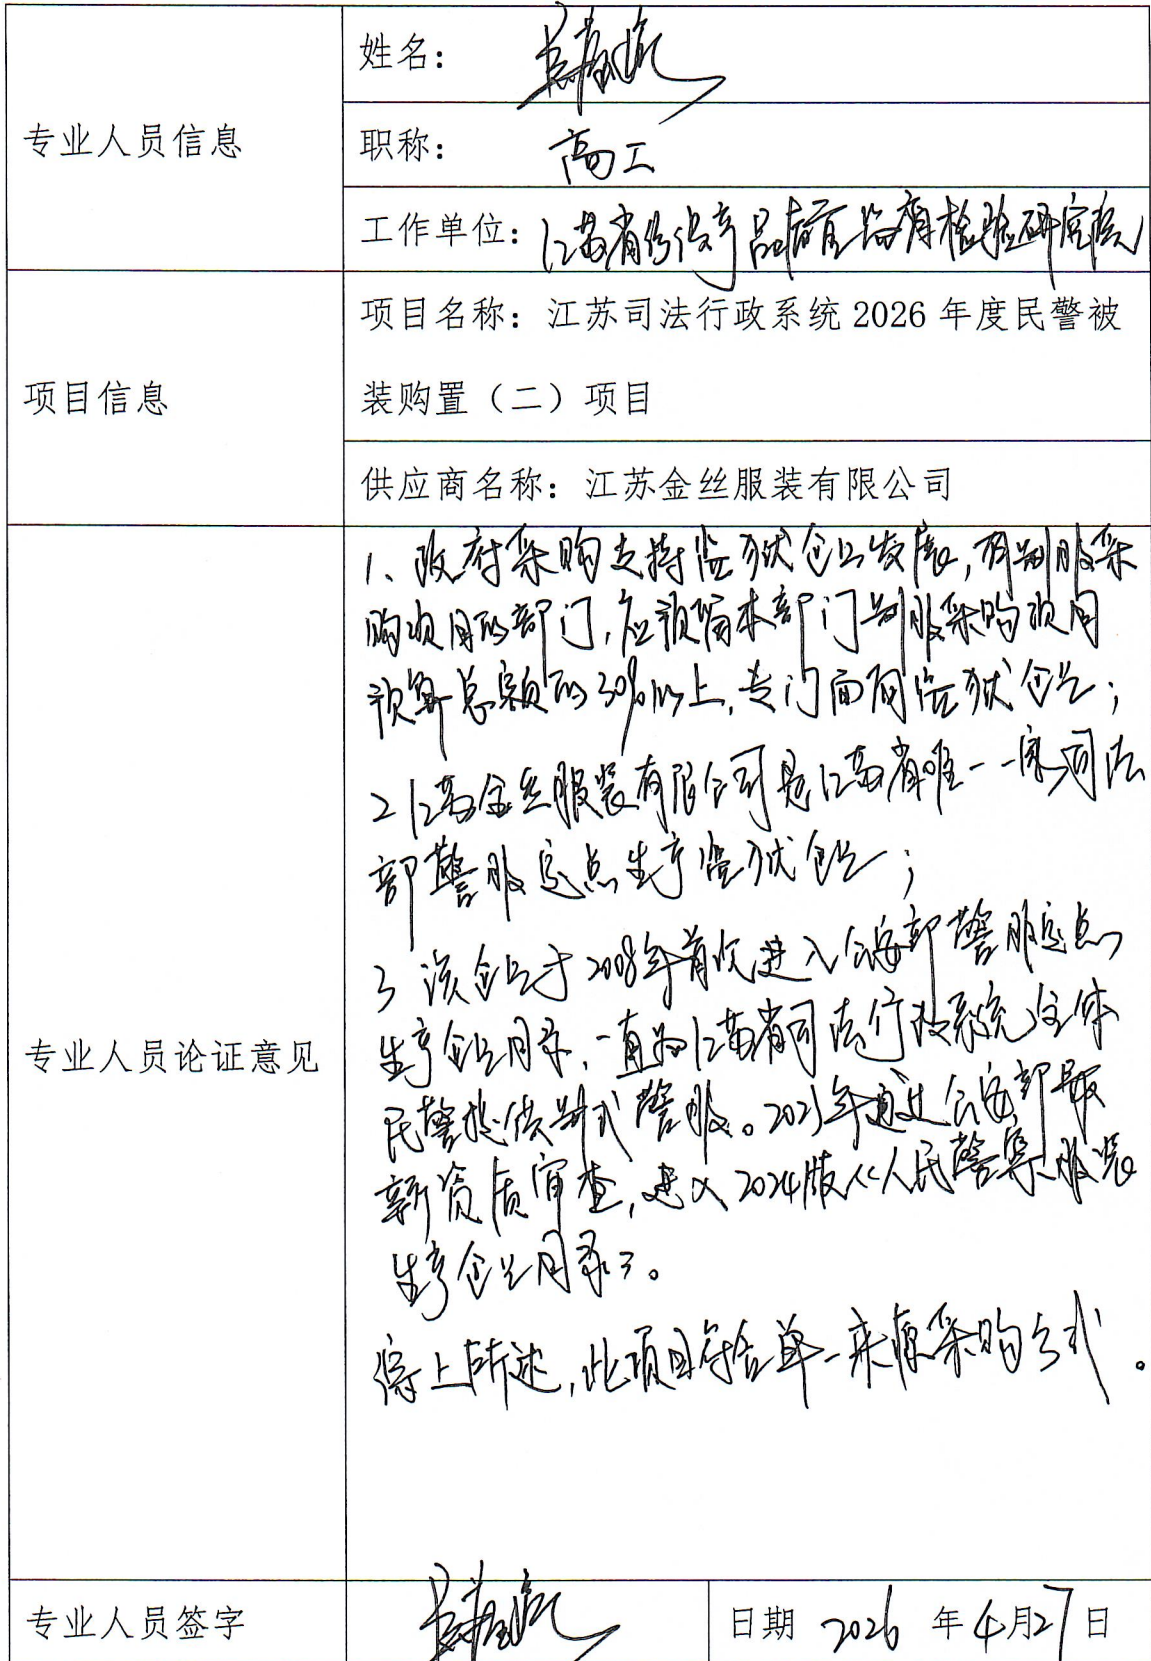 专业人员信息
姓名：
职称： 高工
工作单位：江苏省纺织产品质量监督检验研究院
项目信息
项目名称：江苏司法行政系统 2026 年度民警被
装购置（二）项目
供应商名称：江苏金丝服装有限公司
专业人员论证意见
1、政府采购支持监狱企业发展，有制服采
购项目的部门，应预留本部门制服采购项目
预算总额的30%以上，专门面向监狱企业；
2 江苏金丝服装有限公司是江苏省唯一一家司法
部警服定点生产监狱企业；
3 该企业于2008年首次进入公安部警服定点
生产企业目录，一直为江苏省司法行政系统全体
民警提供制式警服。2023年通过公安部最
新资质审查，进入2024版《人民警察服装
生产企业目录》。
综上所述，此项目符合单一来源采购方式。
专业人员签字
日期 2026 年 4月27日